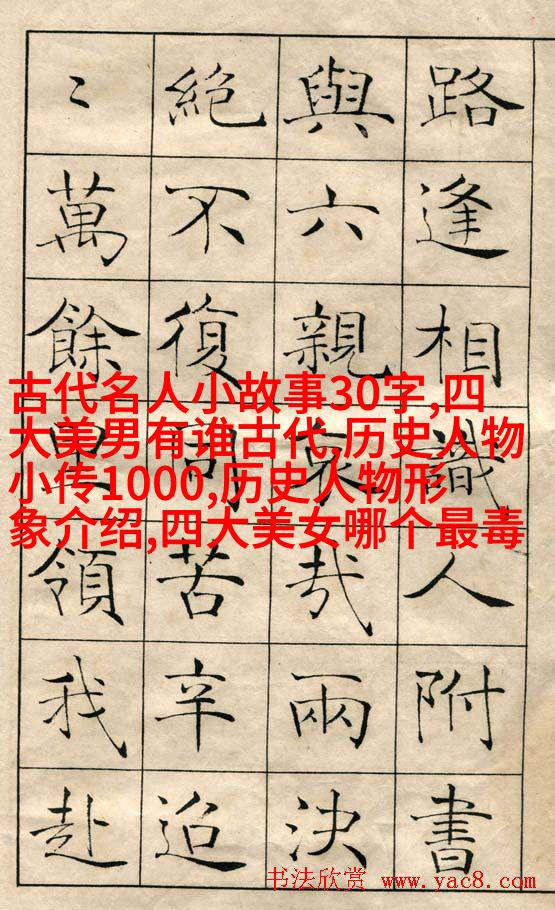 路逢相識人附書
與六親哀哉兩決
絕不復同苦辛迢
〻萬餘里領我赴
古代名人小故事30字,四
大美男有谁古代,历史人物
小传1000,历史人物形
象介绍,四大美女哪个最毒
书法欣赏 www.yac8.com